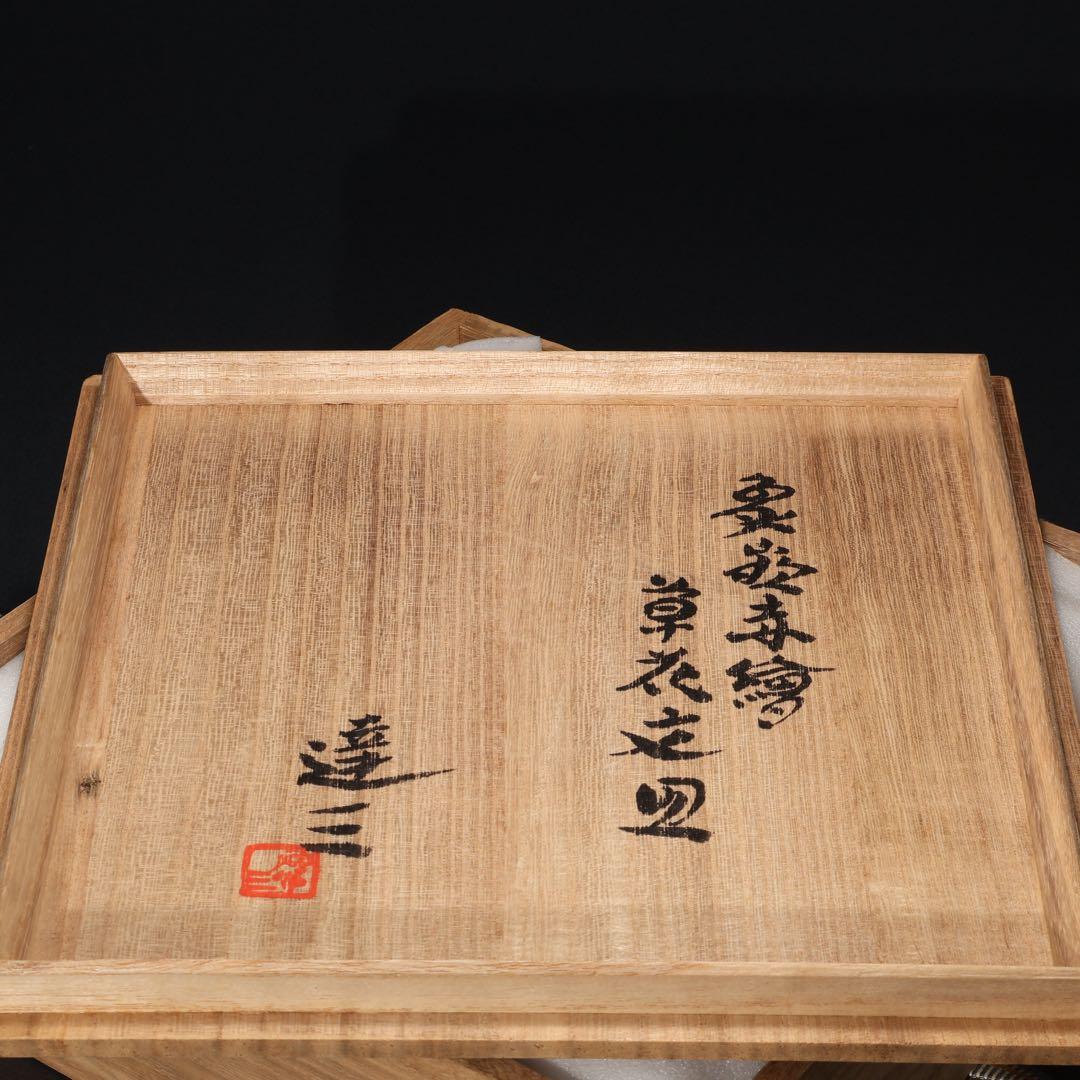 象嵌赤繪
草花文皿
達三